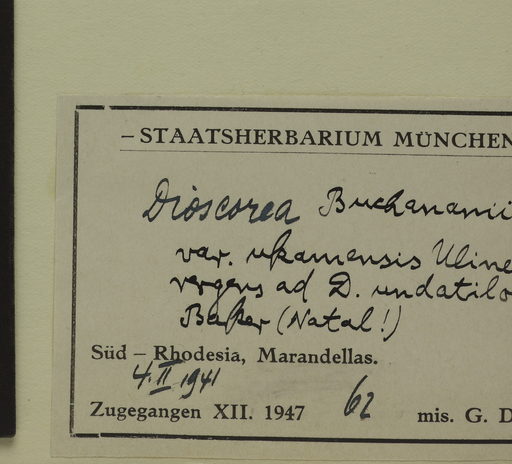 – STAATSHERBARIUM MÜNCHEN
Dioscorea Buchananii
var. ukamensis Uline
vergens ad D. undatilo
Baker (Natal!)
Süd – Rhodesia, Marandellas.
4.II 1941
Zugegangen XII. 1947 62 mis. G. D